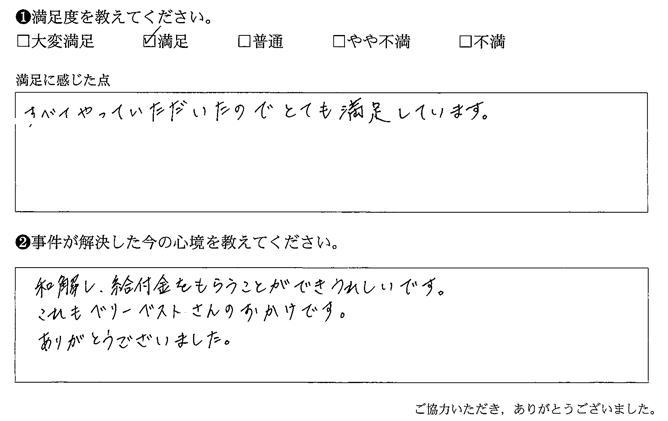 ❶満足度を教えてください。
□大変満足 ☑満足 □普通 □やや不満 □不満
満足に感じた点
すべてやっていただいたので とても満足しています。
❷事件が解決した今の心境を教えてください。
和解し、給付金をもらうことができうれしいです。
これもベリーベストさんのおかげです。
ありがとうございました。
ご協力いただき，ありがとうございました。